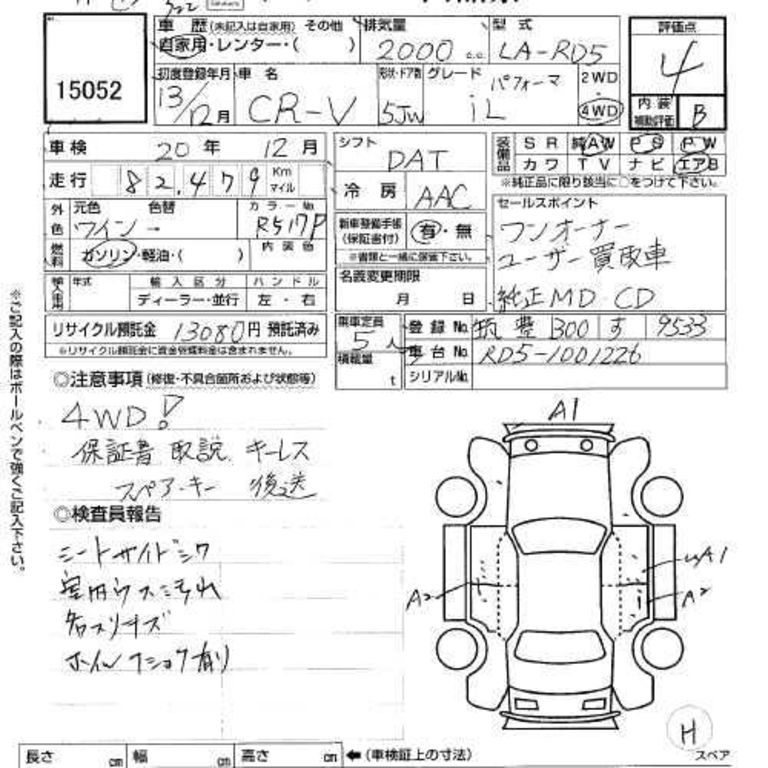 車歴 (未記入は自家用) その他 排気量 型式 評価点
15052 自家用・レンター・( ) 2000 c.c. LA-RD5 4
初度登録年月 車名 形状・ドア数 グレード パフォーマ 2WD・4WD 内装補助評価 B
13/12月 CR-V 5JW iL
車検 20年 12月 シフト DAT 装備品 SR 純AW PS PW
カワ TV ナビ エアB
走行 82,479 Km マイル 冷房 AAC ※純正品に限り該当に○をつけて下さい。
外色 元色 色替 カラーNo. 新車整備手帳(保証書付) 有・無 セールスポイント
ワイン→ R517P ※書類と一緒に保管下さい。 ワンオーナー
燃料 ガソリン・軽油・( ) 内装色 ユーザー買取車
輸入車用 年式 輸入区分 ハンドル 名義変更期限
ディーラー・並行 左・右 月 日 純正MD CD
リサイクル預託金 13080円 預託済み 乗車定員 5人 登録No. 筑豊 300 す 9533
※リサイクル預託金に資金管理料金は含まれません。 積載量 t 車台No. RD5-1001226
シリアルNo.
◎注意事項 (修復・不具合箇所および状態等)
4WD!
保証書 取説 キーレス
スペアーキー 後送
◎検査員報告
シートサイドシワ
室内ウス汚れ
各スリキズ
ホイルフショク有り
A1
A1
A2
A2
H
スペア
長さ cm 幅 cm 高さ cm ← (車検証上の寸法)
※ご記入の際はボールペンで強くご記入下さい。